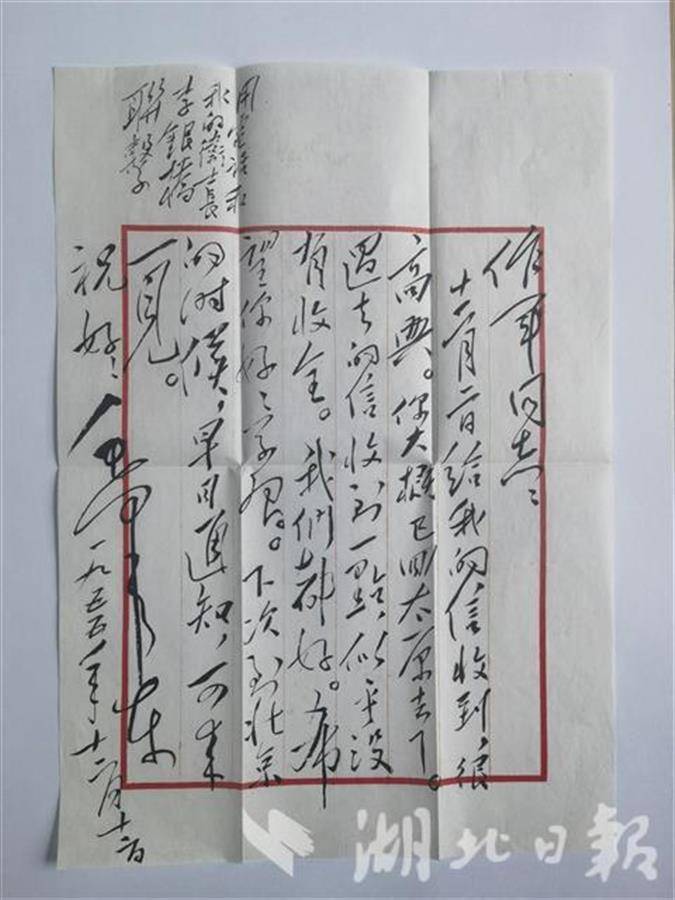 作軍同志：
月 日給我的信收到，很
高興。你大概已回太原去了。
過去的信收到一點，似乎没
有收全。我們都好。希
望你好好學習。下次到北京
的時候，早日通知，可來
一見。
用電話和
我的衛士長
李銀橋
聯繫
祝好！
毛澤東
一九五五年十二月十 日
湖北日報